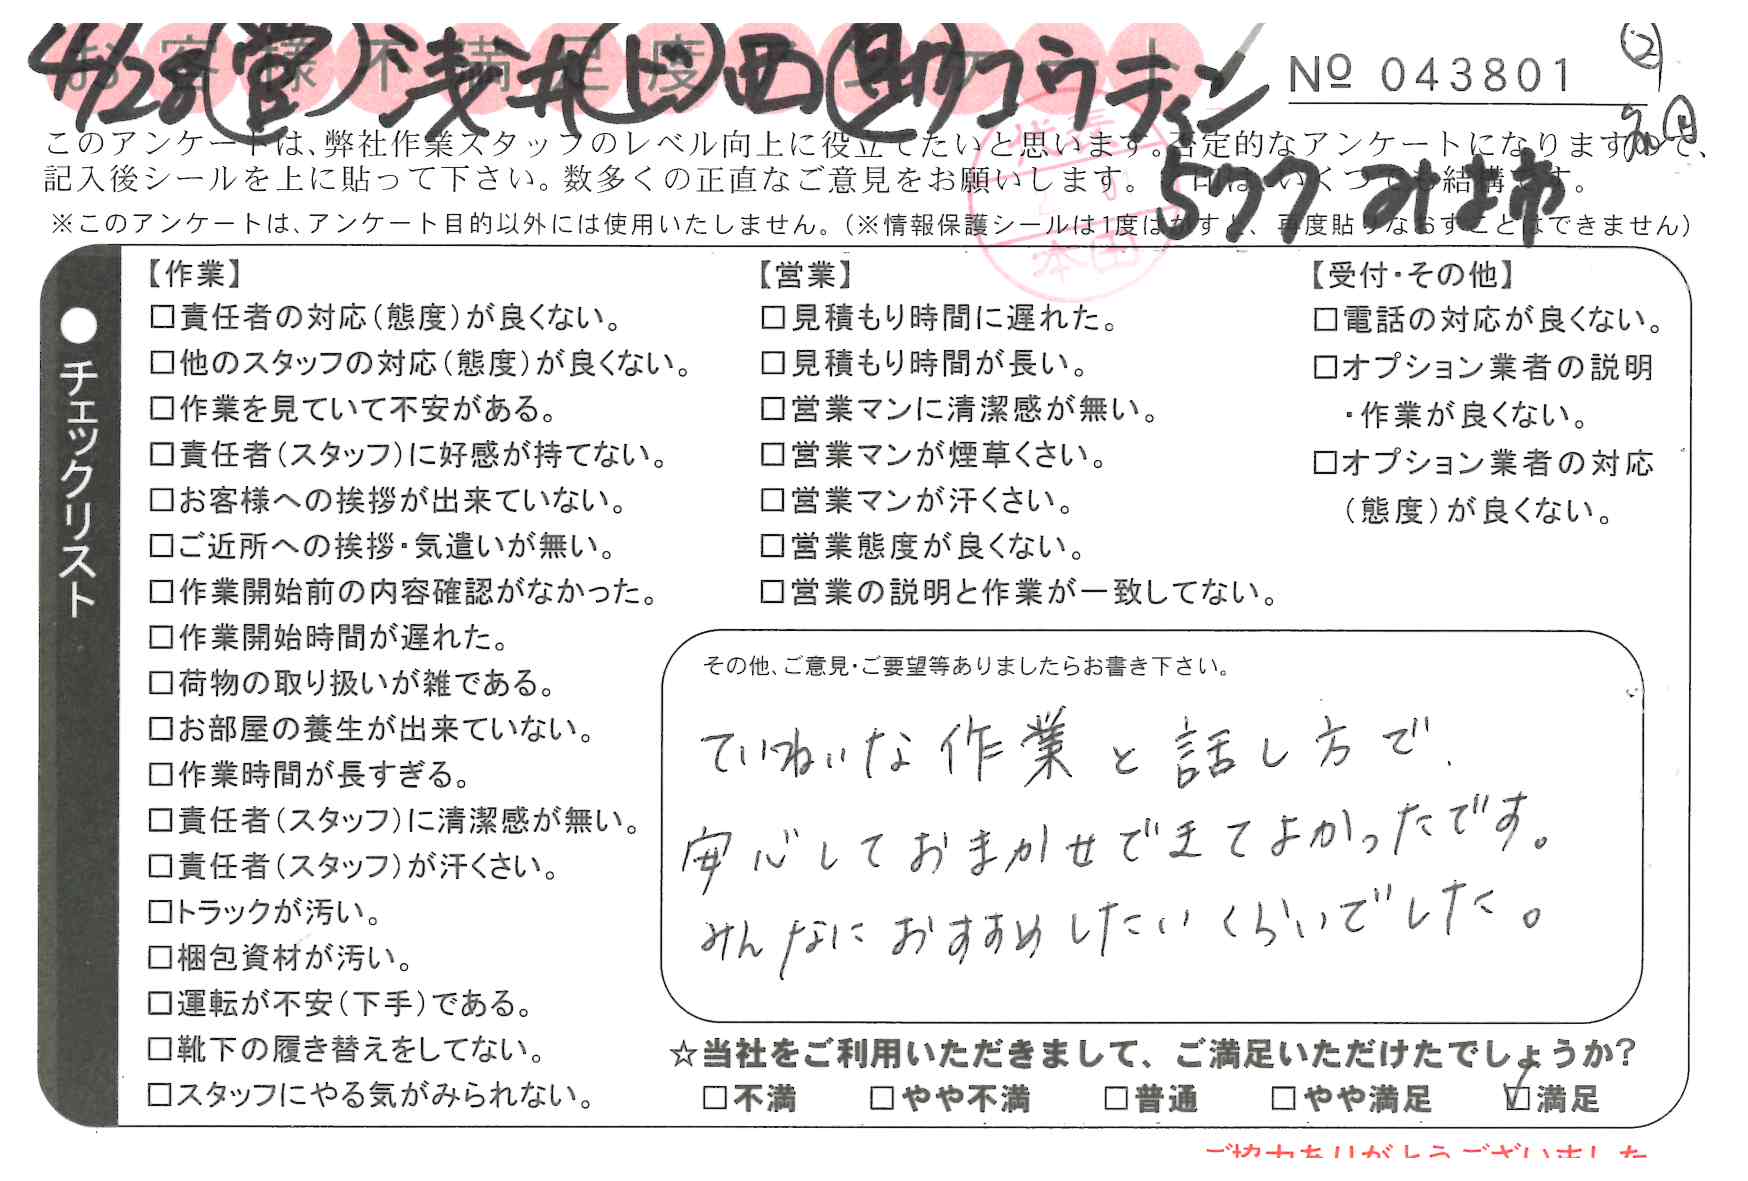 お客様不満足度アンケート
4/28(営)浅井(ビ)西(助)コウティン
№ 043801
このアンケートは、弊社作業スタッフのレベル向上に役立てたいと思います。否定的なアンケートになりますので、
記入後シールを上に貼って下さい。数多くの正直なご意見をお願いします。 印はいくつでも結構です。
577
※このアンケートは、アンケート目的以外には使用いたしません。(※情報保護シールは1度はがすと、再度貼りなおすことはできません)
●チェックリスト
【作業】
□責任者の対応(態度)が良くない。
□他のスタッフの対応(態度)が良くない。
□作業を見ていて不安がある。
□責任者(スタッフ)に好感が持てない。
□お客様への挨拶が出来ていない。
□ご近所への挨拶・気遣いが無い。
□作業開始前の内容確認がなかった。
□作業開始時間が遅れた。
□荷物の取り扱いが雑である。
□お部屋の養生が出来ていない。
□作業時間が長すぎる。
□責任者(スタッフ)に清潔感が無い。
□責任者(スタッフ)が汗くさい。
□トラックが汚い。
□梱包資材が汚い。
□運転が不安(下手)である。
□靴下の履き替えをしてない。
□スタッフにやる気がみられない。
【営業】
□見積もり時間に遅れた。
□見積もり時間が長い。
□営業マンに清潔感が無い。
□営業マンが煙草くさい。
□営業マンが汗くさい。
□営業態度が良くない。
□営業の説明と作業が一致してない。
【受付・その他】
□電話の対応が良くない。
□オプション業者の説明
・作業が良くない。
□オプション業者の対応
(態度)が良くない。
その他、ご意見・ご要望等ありましたらお書き下さい。
ていねいな作業と話し方で、
安心しておまかせできてよかったです。
みんなにおすすめしたいくらいでした。
☆当社をご利用いただきまして、ご満足いただけたでしょうか?
□不満 □やや不満 □普通 □やや満足 ☑満足
ご協力ありがとうございました